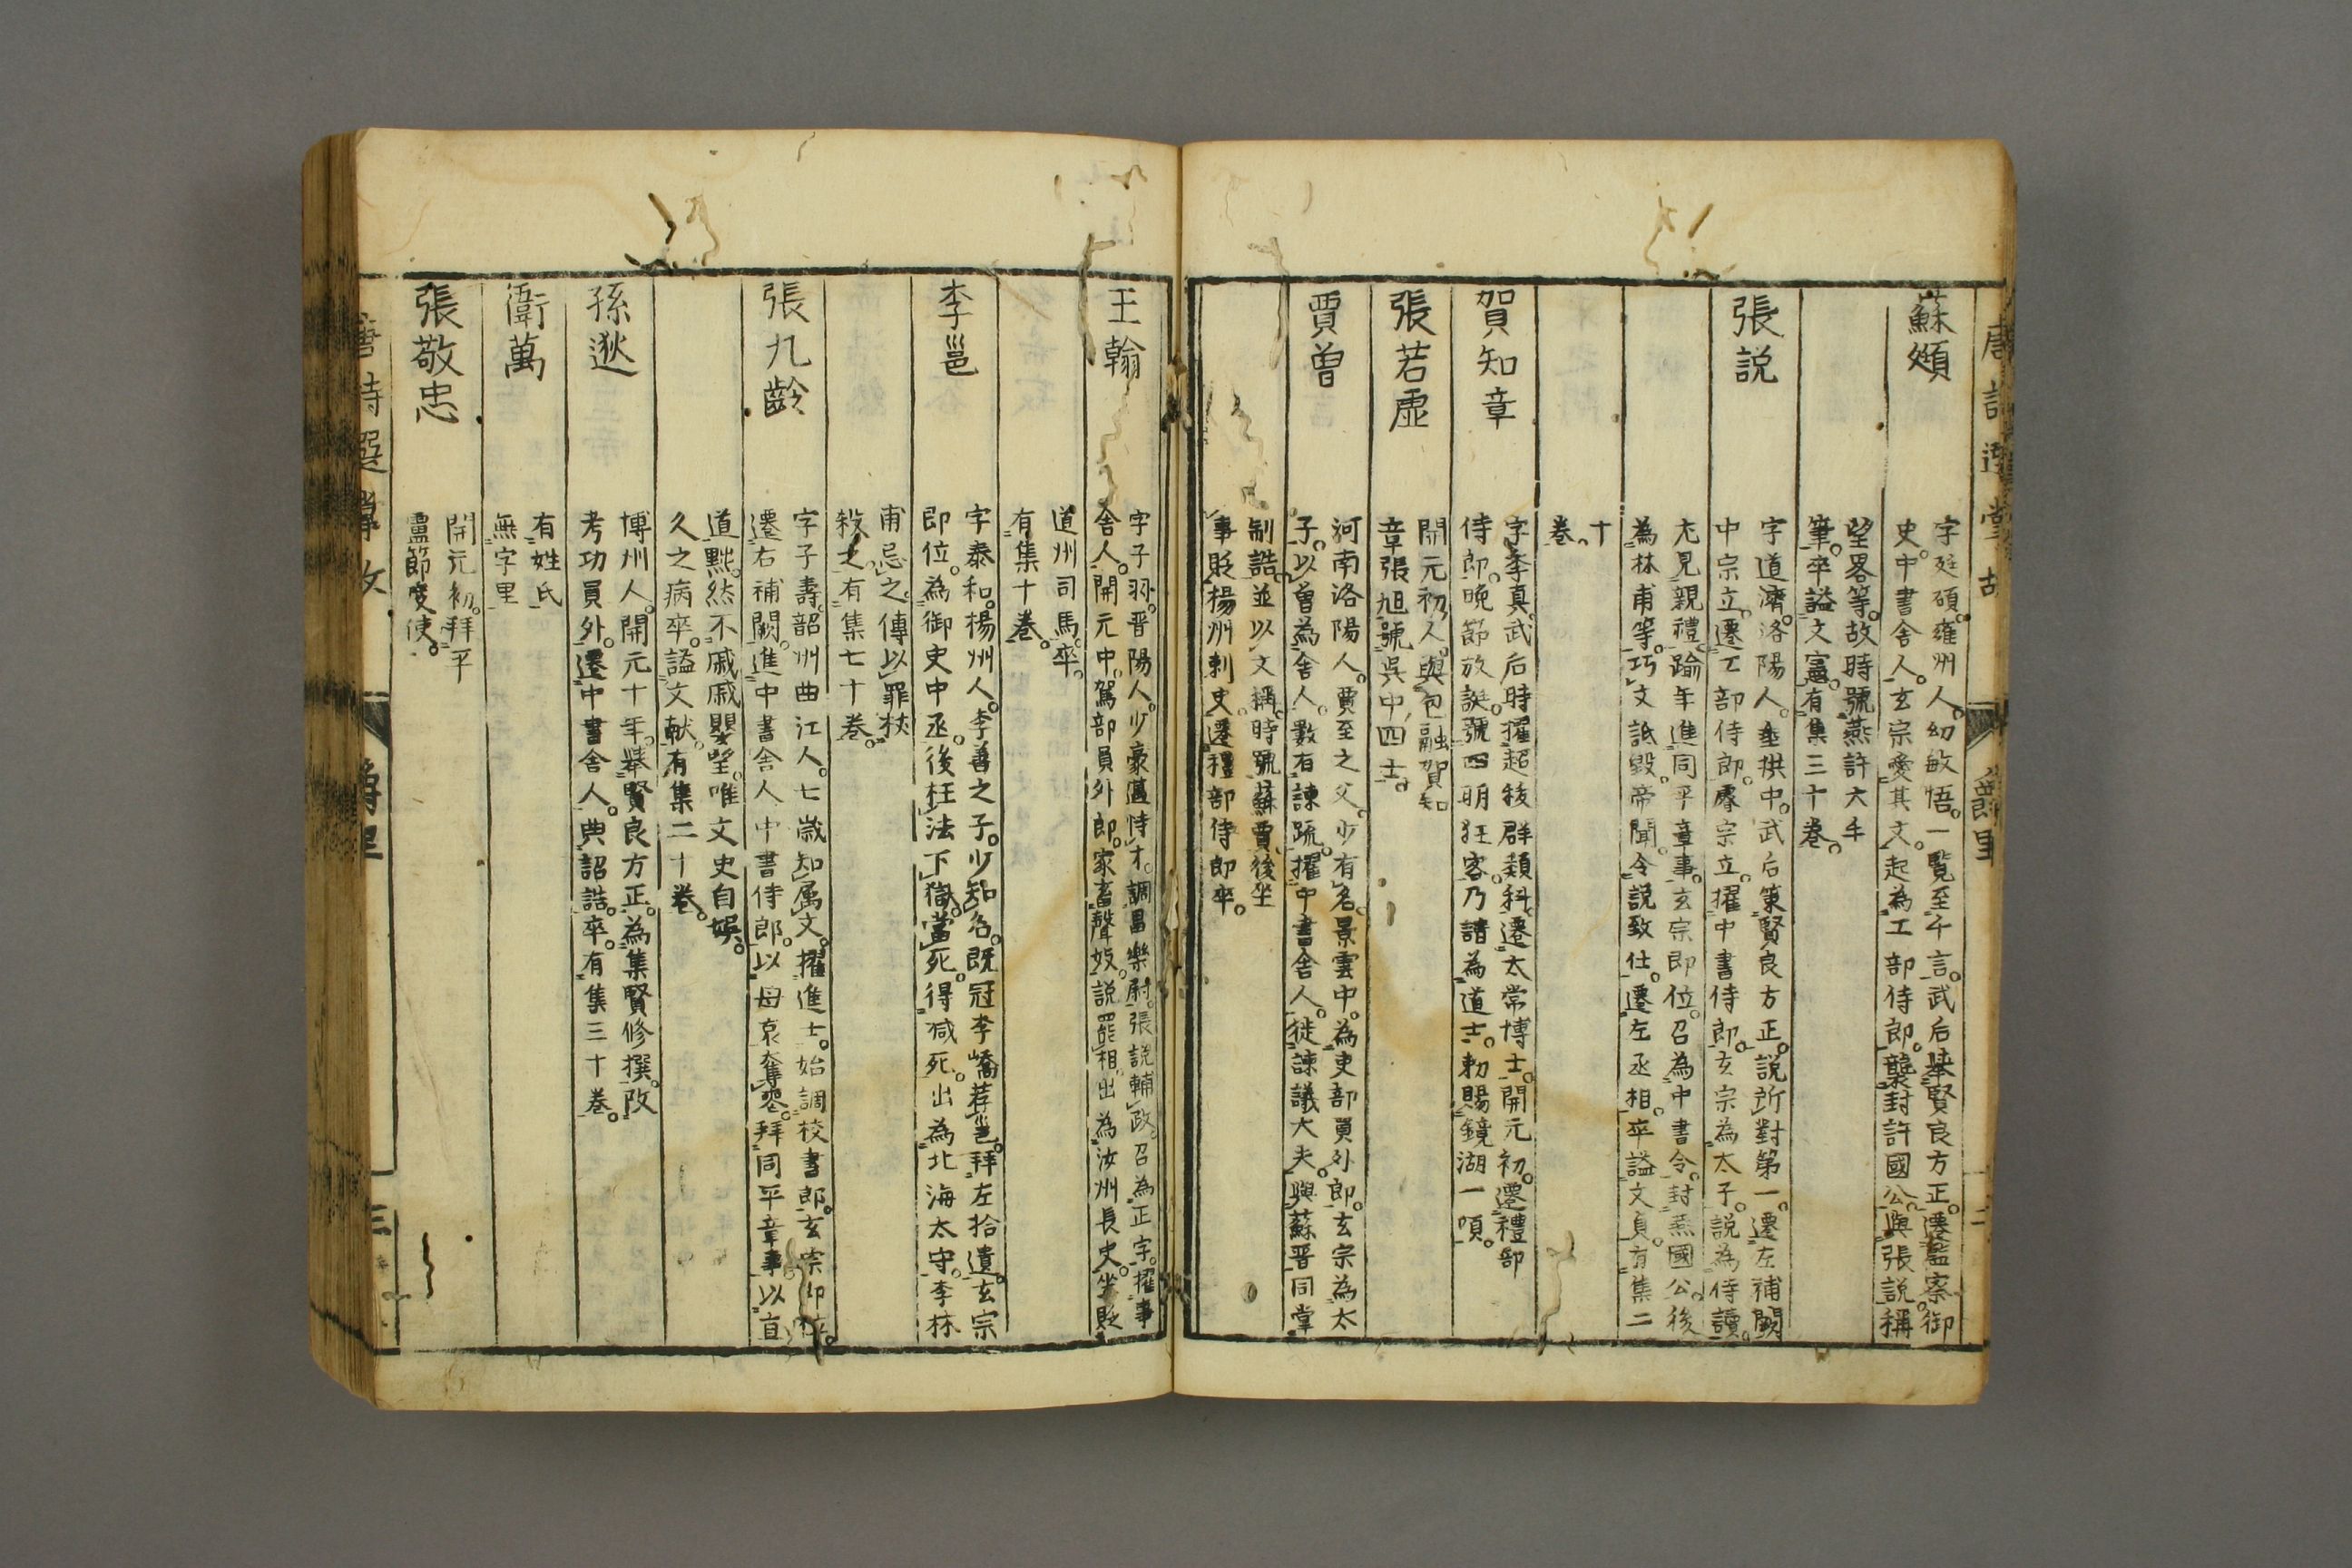 蘇頲
字廷碩。雍州人。幼敏悟。一覧至千言。武后舉賢良方正。遷監察御
史。中書舍人。玄宗愛其文。起為工部侍郎。襲封許國公。與張說稱
望畧等。故時號燕許大手
筆。卒謚文憲。有集三十巻。
張説
字道濟。洛陽人。垂拱中。武后策賢良方正。說所對第一。遷左補闕
中宗立。遷工部侍郎。睿宗立。擢中書侍郎。玄宗為太子。説為侍讀。
尤見親禮。踰年進同平章事。玄宗即位。召為中書令。封燕國公。後
為林甫等。巧文詆毀。帝聞令説致仕。遷左丞相。卒謚文貞。有集二
十
巻。
賀知章
字季真。武后時擢超拔群類科。遷太常博士。開元初。遷禮部
侍郎。晩節放誕。號四明狂客。乃請為道士。勅賜鏡湖一頃。
張若虛
開元初人。與包融賀知
章張旭號吳中四士。
賈曽
河南洛陽人。賈至之父。少有名。景雲中。為吏部員外郎。玄宗為太
子。以曽為舍人。數有諫疏。擢中書舍人。徙諫議大夫。與蘇晋同掌
制誥。並以文稱。時號蘇賈。後坐
事貶楊州刺史。遷禮部侍郎卒。
唐詩選掌故
爵里
二
王翰
字子羽。晋陽人。少豪蕩恃才。調昌樂尉。張説輔政。召為正字。擢事
舍人。開元中。駕部員外郎。家畜聲妓。説罷相。出為汝州長史。坐貶
道州司馬。卒。
有集十巻。
李邕
字泰和。楊州人。李善之子。少知名。既冠李嶠荐邕。拜左拾遺。玄宗
即位。為御史中丞。後枉法下獄。當死。得减死。出為北海太守。李林
甫忌之。傳以罪杖
殺之。有集七十巻。
張九齡
字子壽。韶州曲江人。七歳知属文。擢進士。始調校書郎。玄宗即位。
遷右補闕。進中書舍人中書侍郎。以母哀奪容。拜同平章事。以直
道黜。然不戚戚嬰望。唯文史自娯。
久之病卒。謚文献。有集二十巻。
孫逖
博州人。開元十年。舉賢良方正。為集賢修撰。改
考功員外。遷中書舍人。典詔誥。卒。有集三十巻。
衞萬
有姓氏
無字里
張敬忠
開元初。拜平
盧節度使。
唐詩選掌故
爵里
三